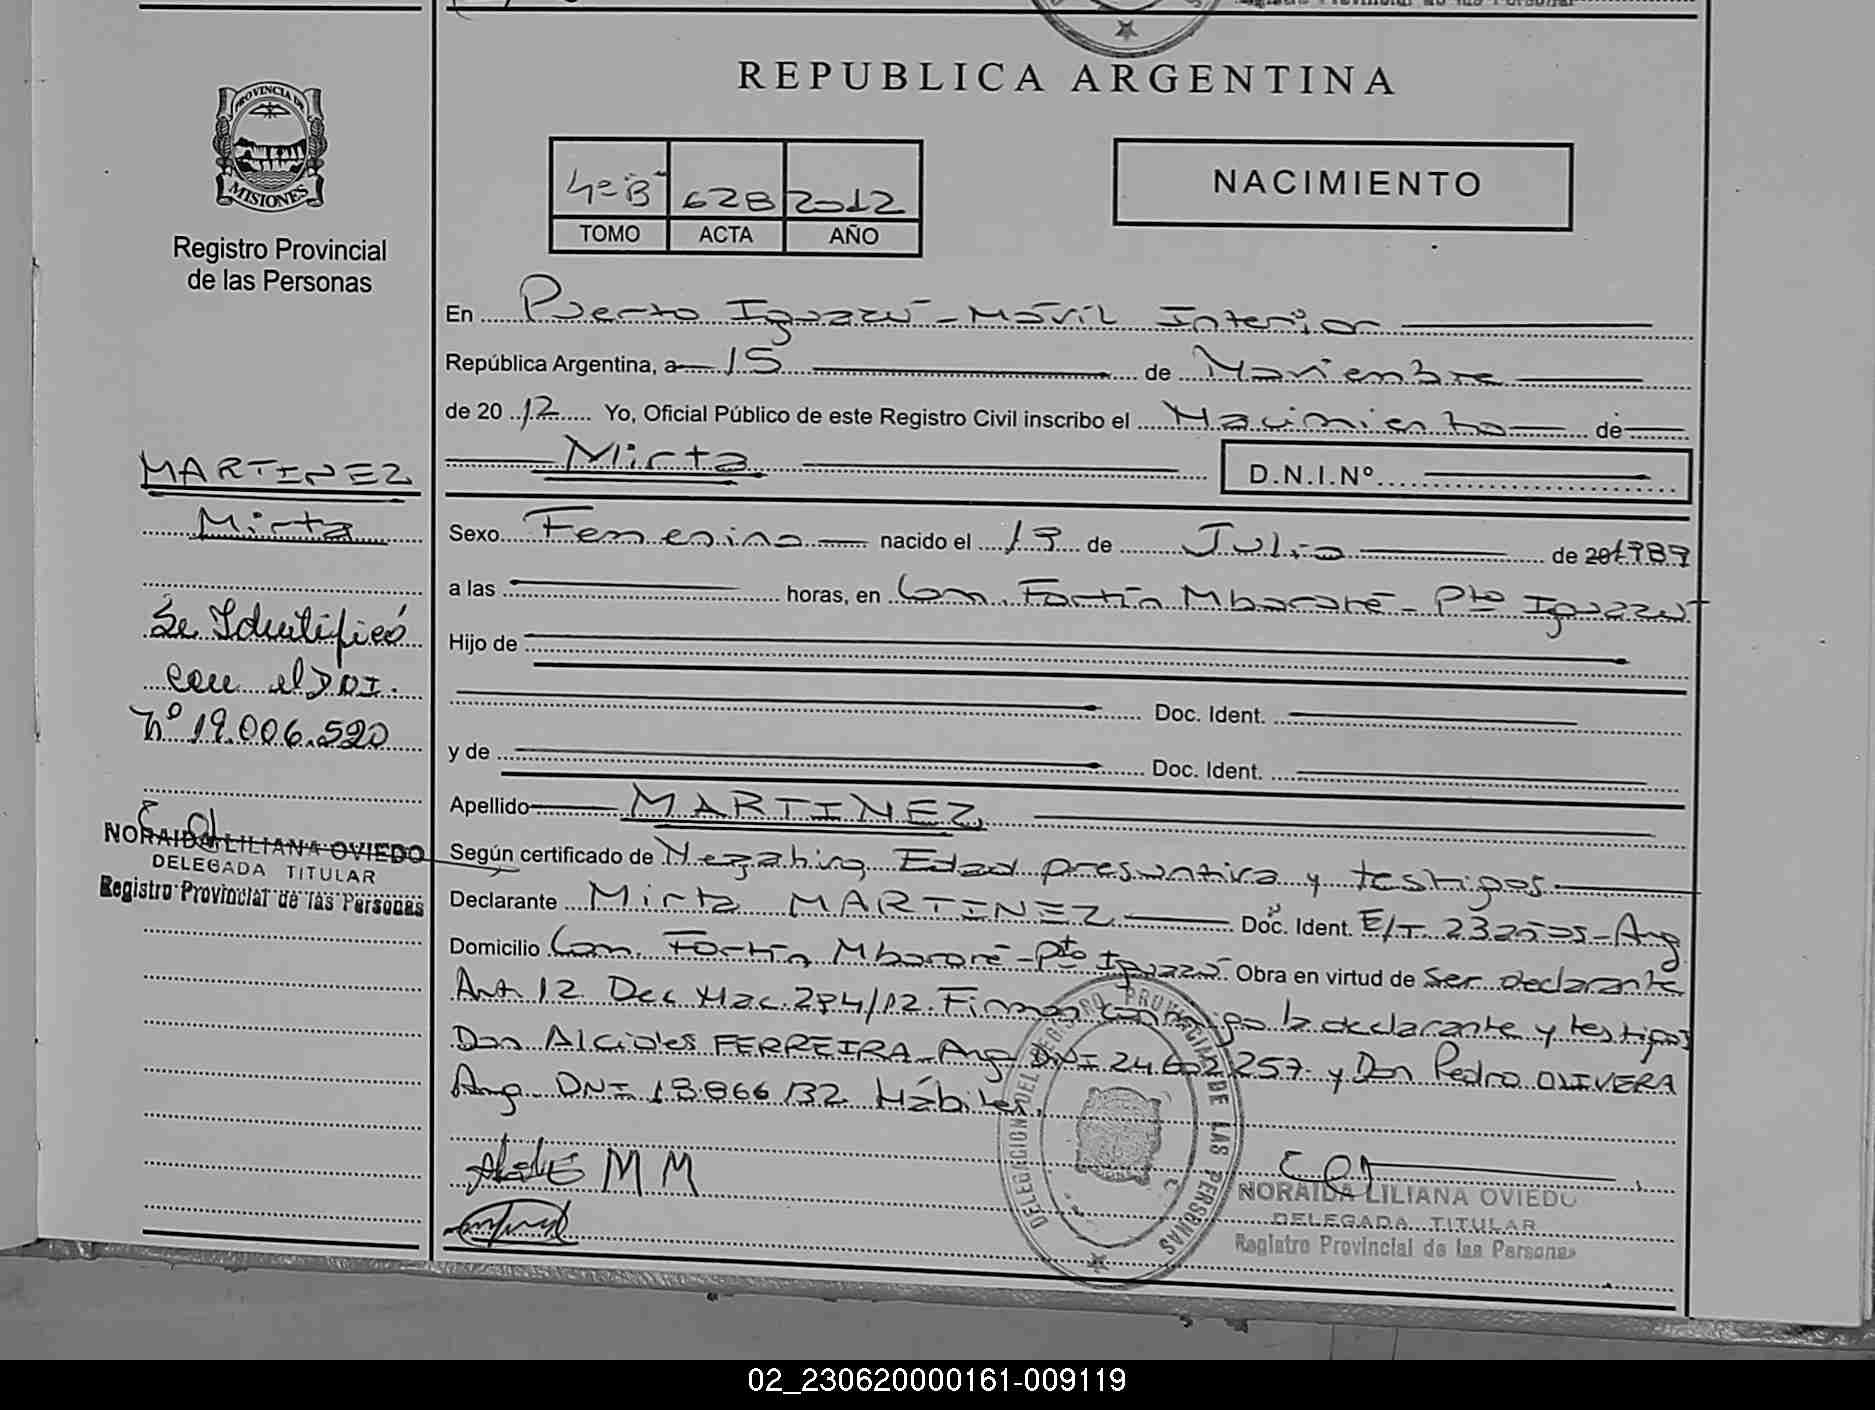 REPUBLICA ARGENTINA
PROVINCIA DE
MISIONES
Registro Provincial
de las Personas
4º "B" 628 2012
TOMO ACTA AÑO
NACIMIENTO
En Puerto Iguazú - Móvil Interior
República Argentina, a 15 de Noviembre
de 2012 Yo, Oficial Público de este Registro Civil inscribo el Nacimiento de
Mirta D.N.I.Nº
Sexo Femenino nacido el 13 de Julio de 20
a las horas, en Com. Fortín Mbororé - Pto Iguazú
Hijo de
Doc. Ident.
y de Doc. Ident.
Apellido MARTINEZ
Según certificado de Negativa, Edad presuntiva y testigos
Declarante Mirta MARTINEZ Doc. Ident. E/T Arg
Domicilio Com. Fortín Mbororé - Pto Iguazú Obra en virtud de Ser declarante
Art 12 Dec Nac. 274/12. Firman conmigo la declarante y testigos
Don Alcides FERREIRA Arg DNI 24.602.257 y Don Pedro OLIVERA
Arg. DNI 18.866.132 Hábiles.
MM
MARTINEZ
Mirta
Se Identificó
con el DNI.
Nº 19.006.520
NORAIDA LILIANA OVIEDO
DELEGADA TITULAR
Registro Provincial de las Personas
DELEGACION DEL REGISTRO PROVINCIAL DE LAS PERSONAS
NORAIDA LILIANA OVIEDO
DELEGADA TITULAR
Registro Provincial de las Personas
02_230620000161-009119